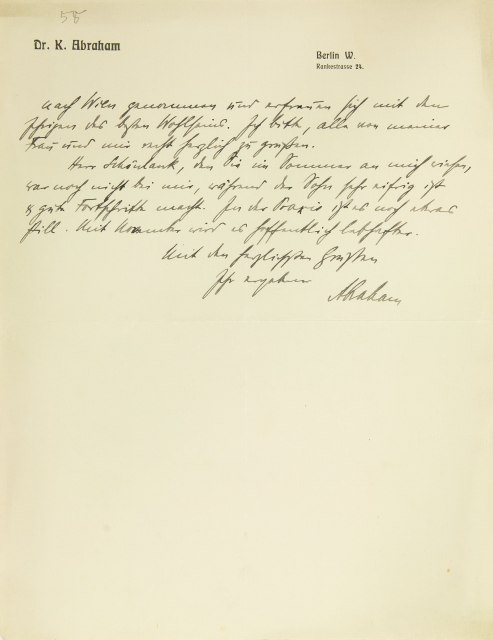 58
Dr. K. Abraham
Berlin W.
Rankestrasse 24.
nach Wien genommen und erfreuen sich mit den
Ihrigen des besten Wohlseins. Ich bitte, alle von meiner
Frau und mir recht herzlich zu grüßen.
Herr Schönlank, den Sie im Sommer an mich wiesen,
war noch nicht bei mir, während der Sohn sehr eifrig ist
& gute Fortschritte macht. In der Praxis ist es noch etwas
still. Mit November wird es hoffentlich lebhafter.
Mit den herzlichsten Grüßen
Ihr ergebener
Abraham